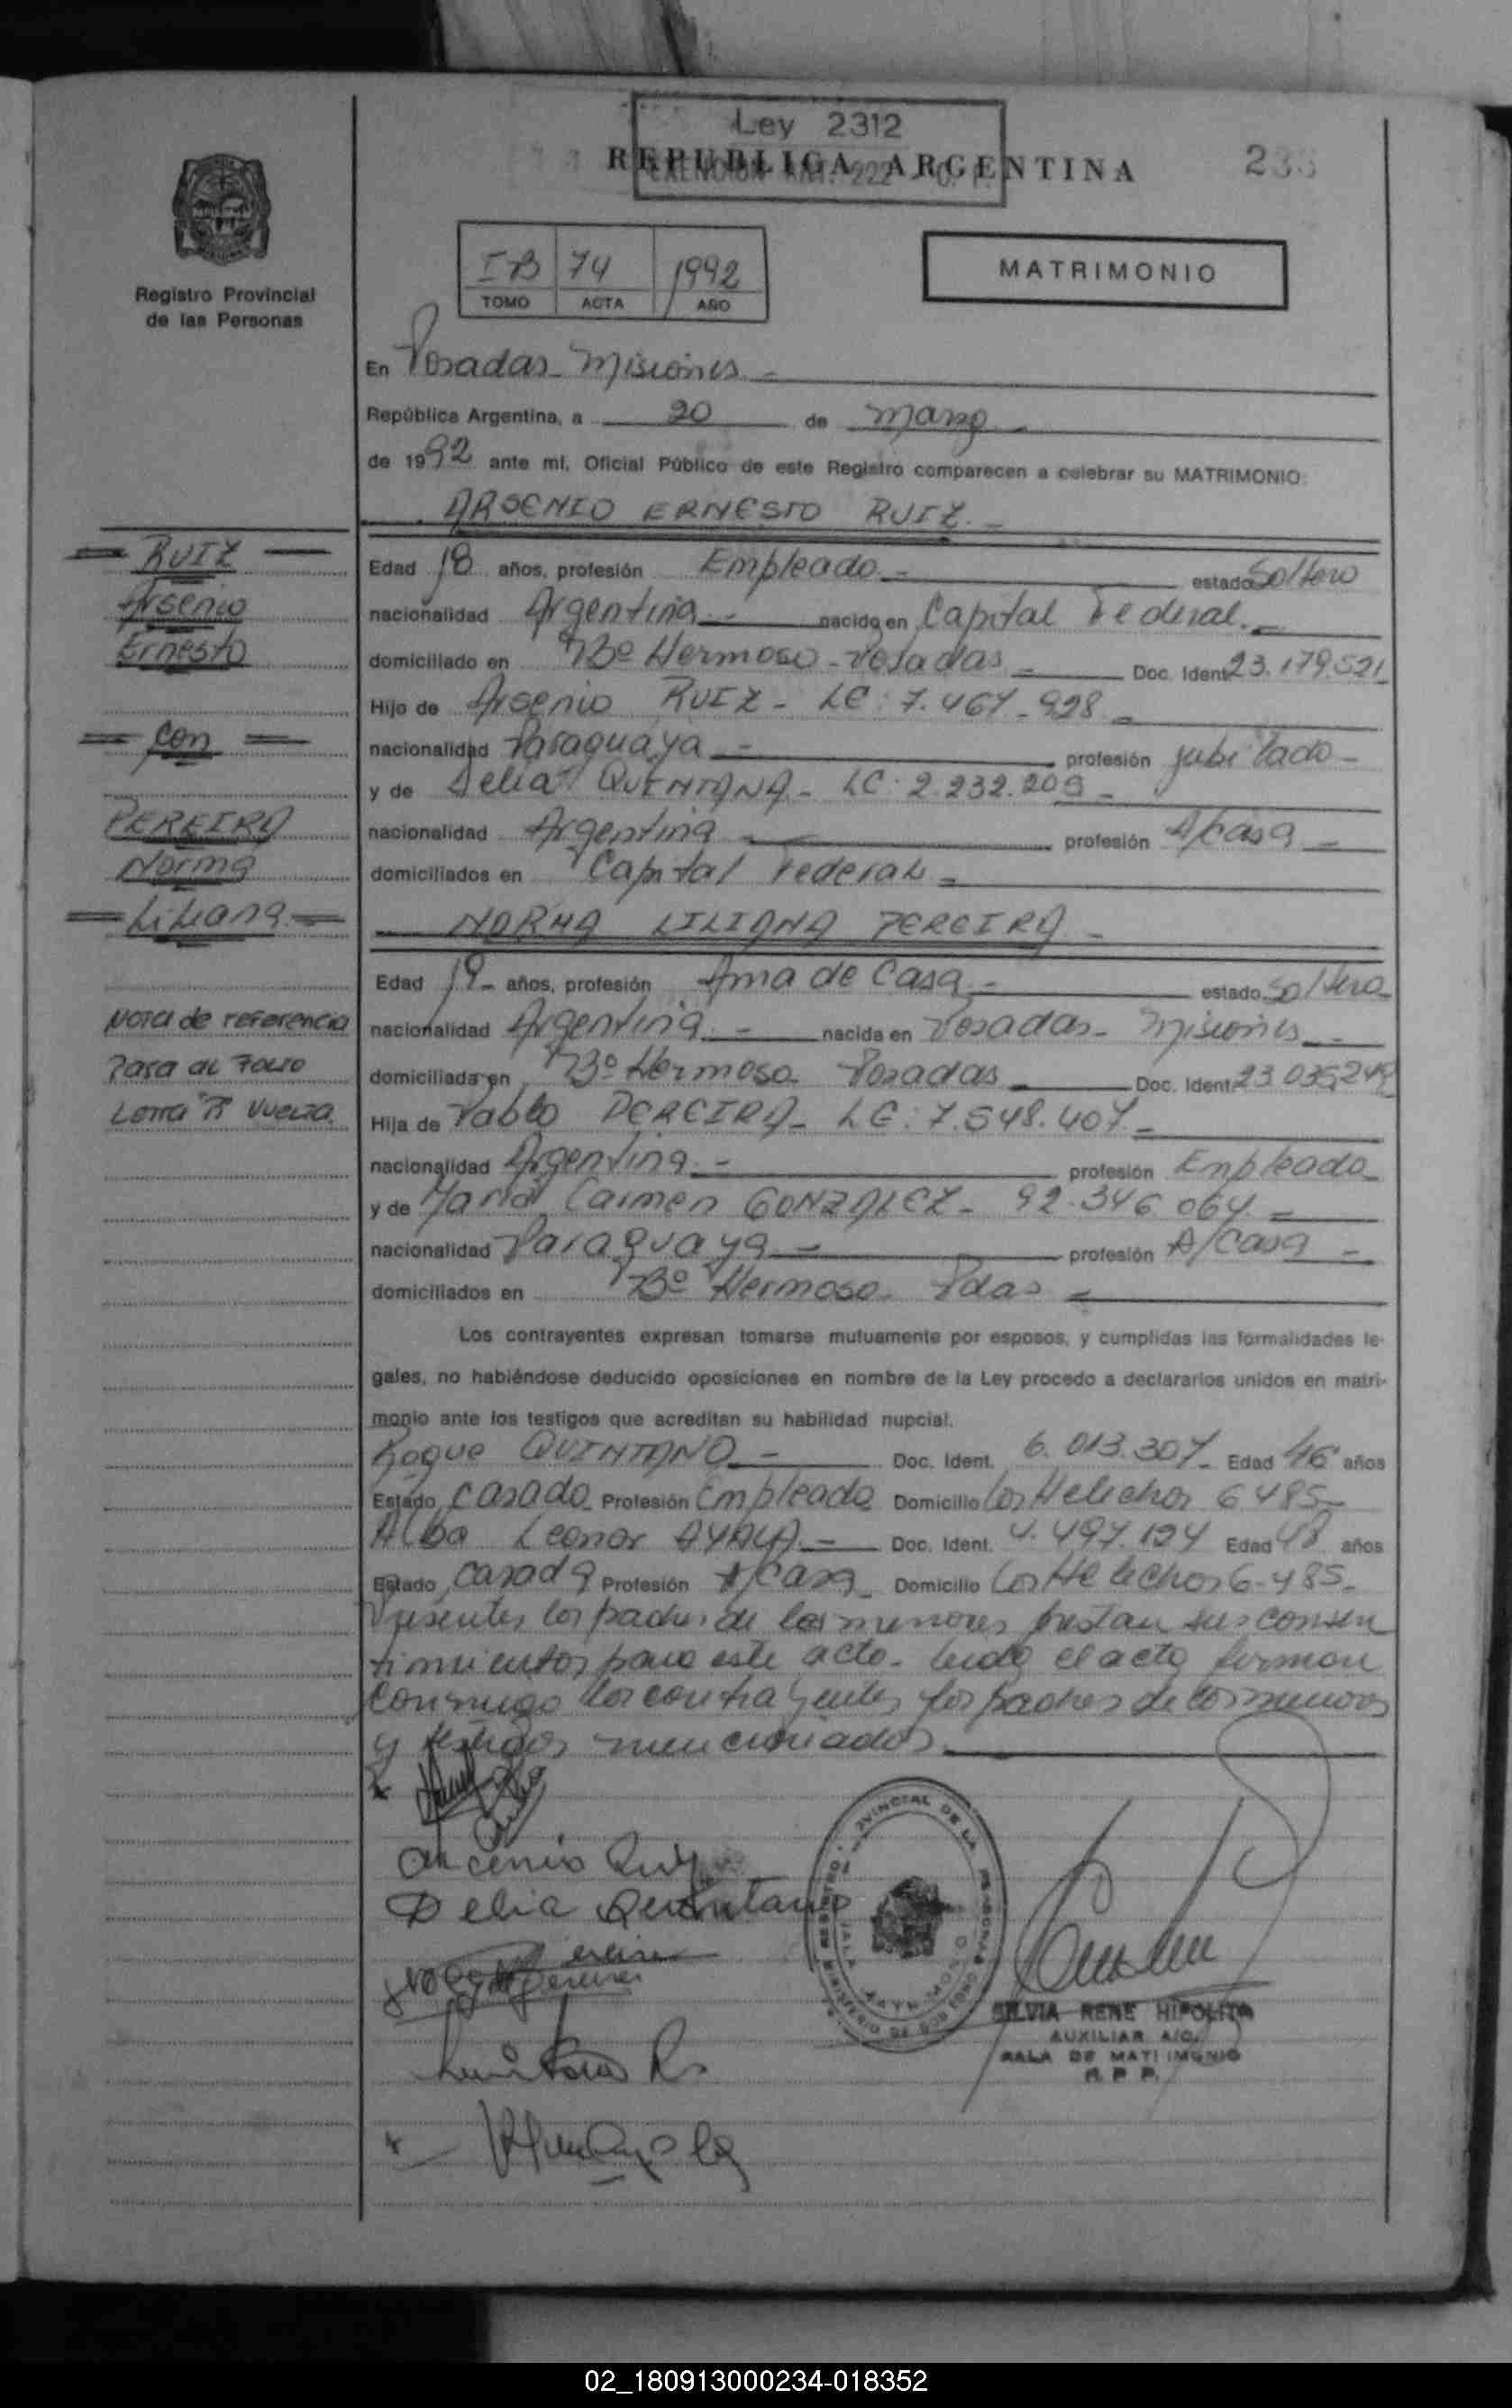 Ley 2312
REPUBLICA ARGENTINA
EXENCION ART. 222
Registro Provincial
de las Personas
IB 74 1992
TOMO ACTA AÑO
MATRIMONIO
En Posadas - Misiones -
República Argentina, a 20 de marzo
de 1992 ante mí, Oficial Público de este Registro comparecen a celebrar su MATRIMONIO:
ARSENIO ERNESTO RUIZ -
Edad 18 años, profesión Empleado - estado Soltero
nacionalidad Argentina - nacido en Capital Federal. -
domiciliado en Bº Hermoso - Posadas - Doc. Ident 23.179.521
Hijo de Arsenio RUIZ - LE: 7.467.928 -
nacionalidad Paraguaya - profesión jubilado -
y de Delia QUINTANA - LC: 2.232.209 -
nacionalidad Argentina - profesión A/casa -
domiciliados en Capital Federal -
NORMA LILIANA PEREIRA -
Edad 19 - años, profesión Ama de Casa - estado Soltera
nacionalidad Argentina - nacida en Posadas - Misiones -
domiciliada en Bº Hermoso - Posadas - Doc. Ident 23.035.249
Hija de Pablo PEREIRA - LE: 7.548.407 -
nacionalidad Argentina - profesión Empleado -
y de María Carmen GONZALEZ - 92.346.064 -
nacionalidad Paraguaya - profesión A/casa -
domiciliados en Bº Hermoso - Pdas -
Los contrayentes expresan tomarse mutuamente por esposos, y cumplidas las formalidades le-
gales, no habiéndose deducido oposiciones en nombre de la Ley procedo a declararlos unidos en matri-
monio ante los testigos que acreditan su habilidad nupcial.
Roque QUINTANO - Doc. Ident. 6.013.307 - Edad 46 años
Estado Casado Profesión Empleado Domicilio Los Helechos 6485 -
Alba Leonor AYALA - Doc. Ident. 4.497.124 Edad 48 años
Estado Casada Profesión A/casa - Domicilio Los Helechos 6-485 -
Presentes los padres de los menores prestan sus consen
timientos para este acto - leida el acta firman
conmigo los contrayentes, los padres de los menores
y testigos mencionados
RUIZ
Arsenio
Ernesto
= con =
PEREIRA
Norma
Liliana
Nota de referencia
Pasa al Folio
Letra "R" vuelta
Arsenio Ruiz
Delia Quintana
Pereira
SILVIA RENE HIPOLITO
AUXILIAR A/C.
SALA DE MATRIMONIO
R. P. P.
02_180913000234-018352